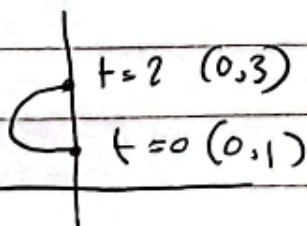 t=2 (0,3)
t=0 (0,1)